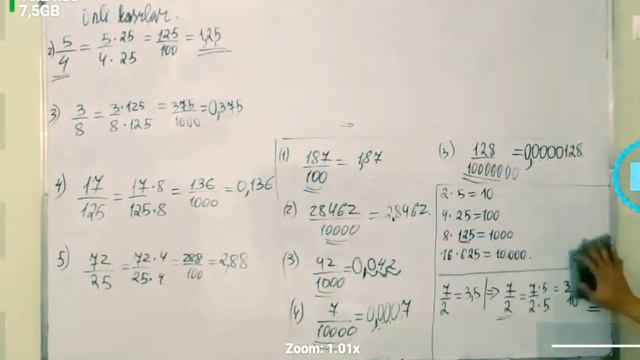 7,5GB
2) 5/4 = 5·25/4·25 = 125/100 = 1,25
3) 3/8 = 3·125/8·125 = 375/1000 = 0,375
4) 17/125 = 17·8/125·8 = 136/1000 = 0,136
5) 72/25 = 72·4/25·4 = 288/100 = 2,88
(1) 187/100 = 1,87
(2) 28462/10000 = 2,8462.
(3) 42/1000 = 0,042
(4) 7/10000 = 0,0007
128/10000000 = 0,0000128.
2·5=10.
4·25=100
8·125=1000
16·625=10.000.
7/2 = 3,5 | ⇒ 7/2 = 7·5/2·5 =
Zoom: 1.01x